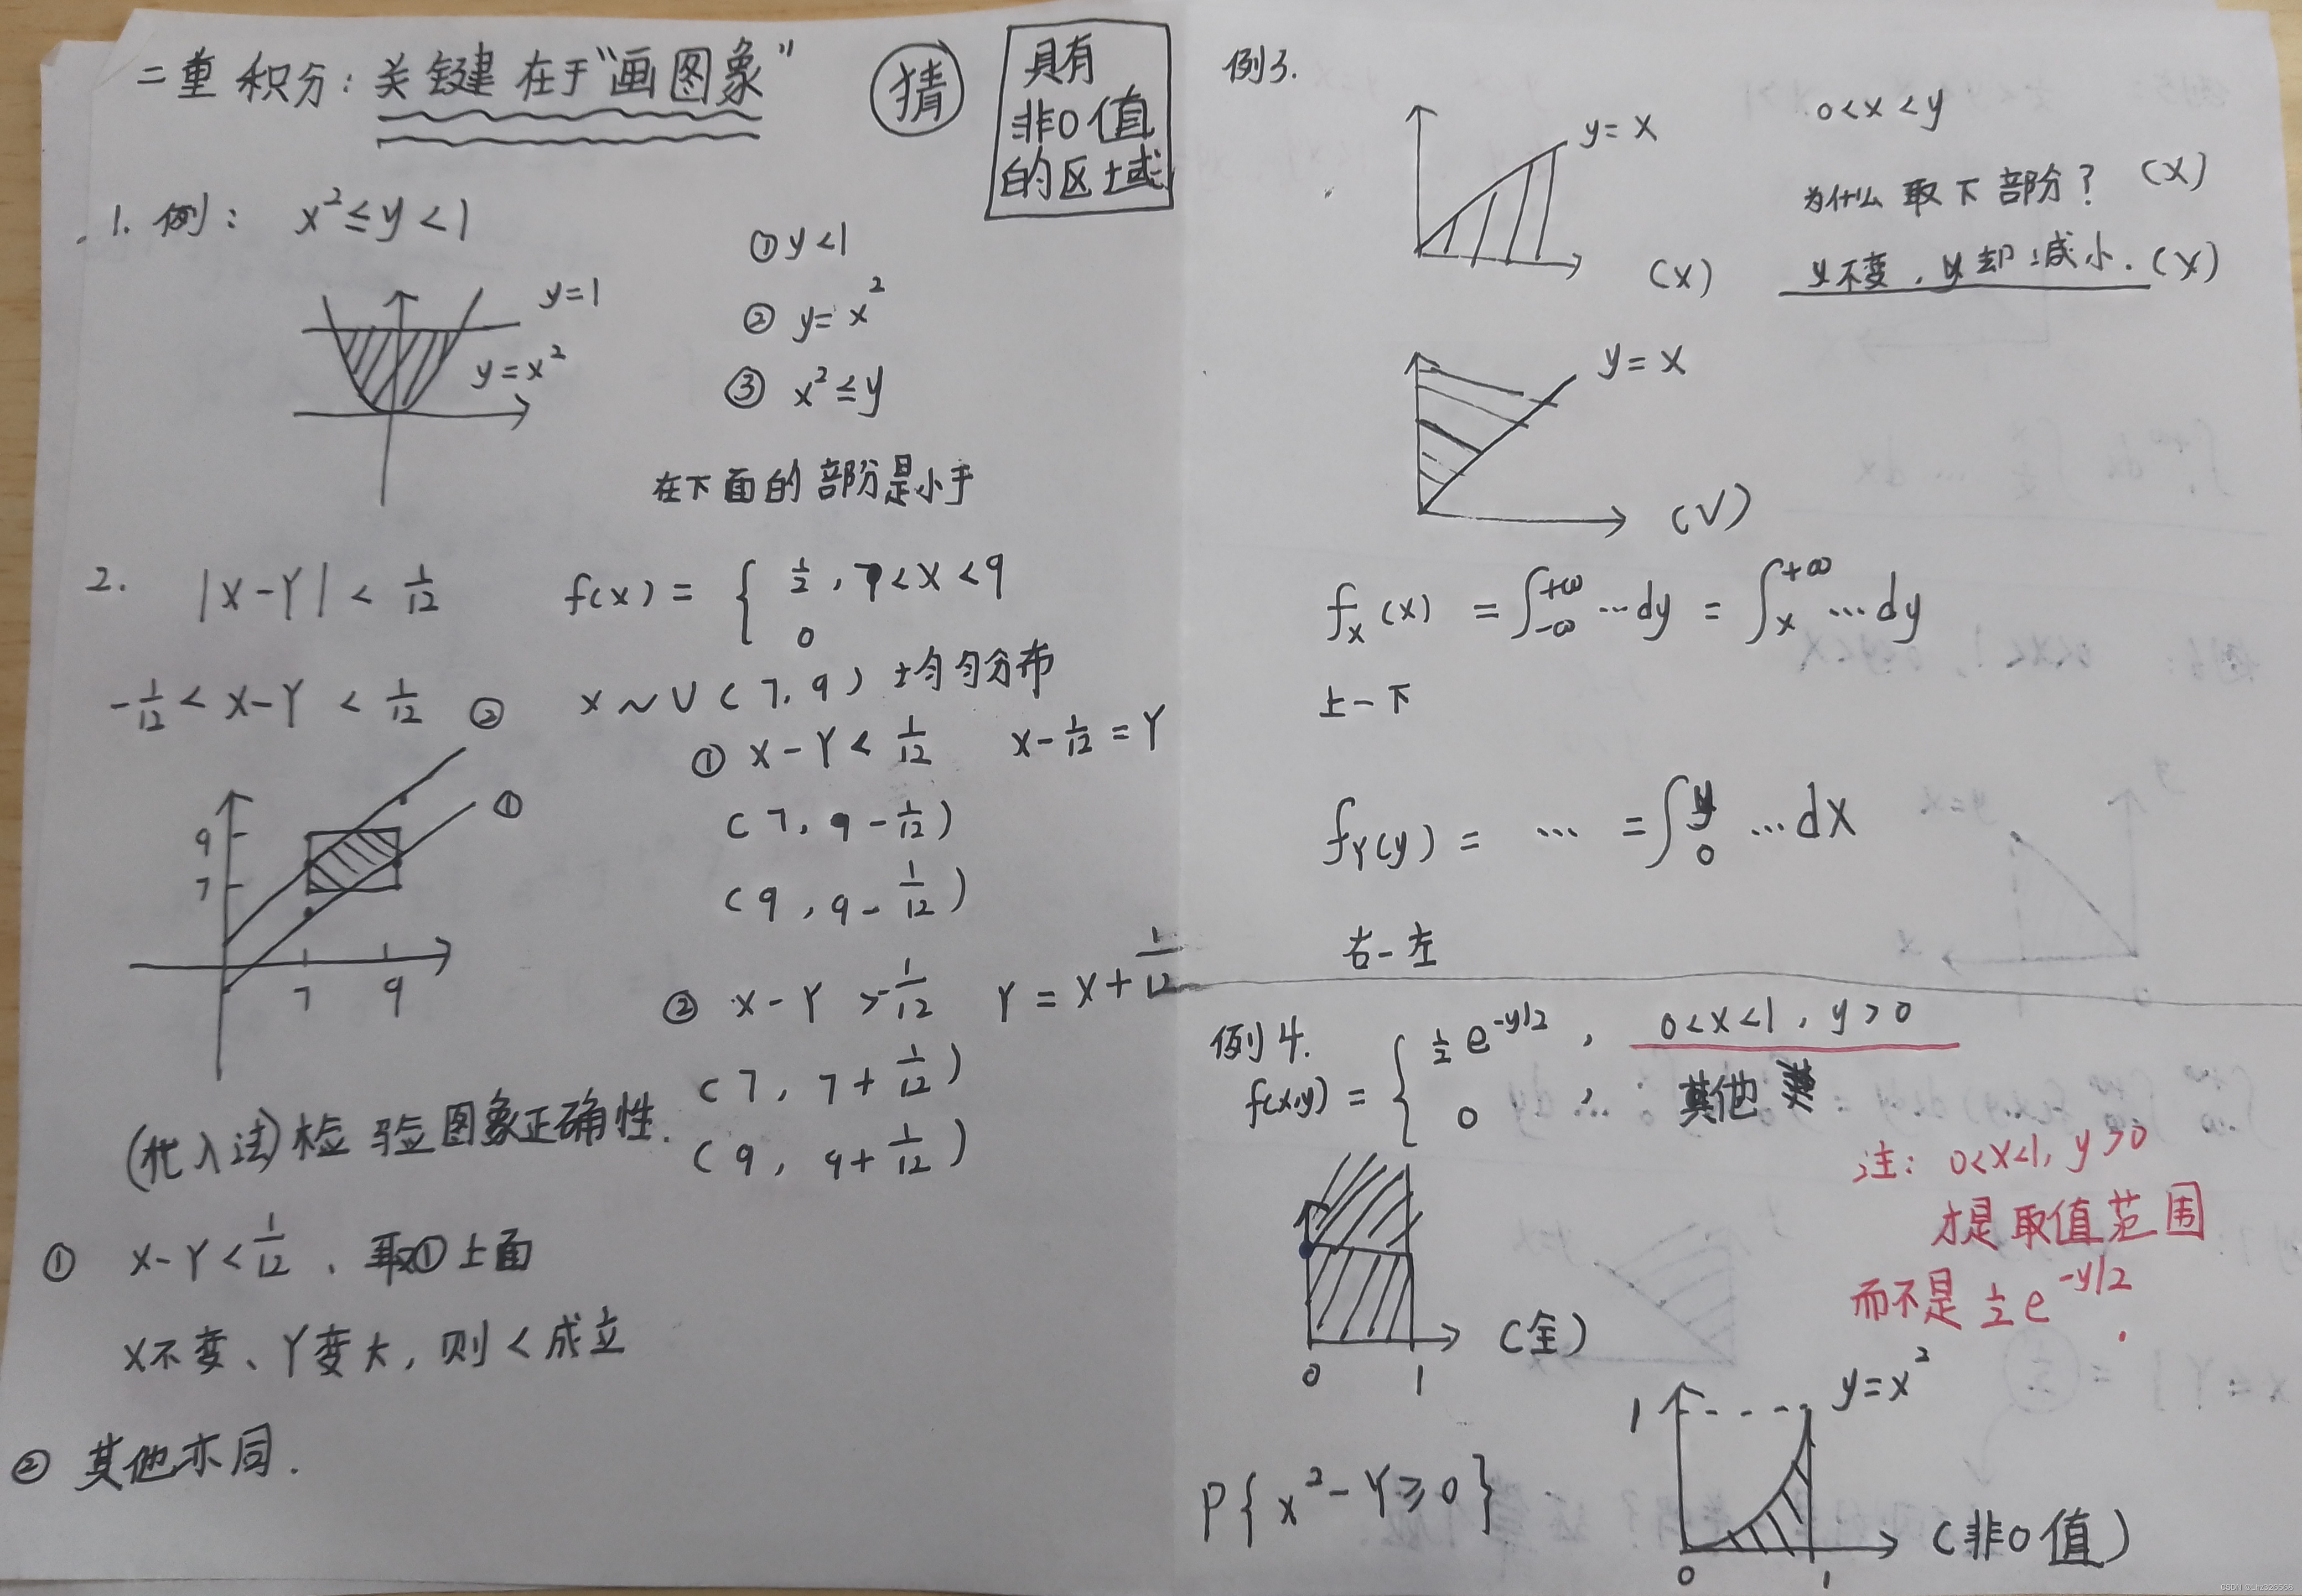 二重积分：关键在于“画图象”
猜
具有
非0值
的区域
1. 例： x²≤y<1
y=1
y=x²
①y<1
② y=x²
③ x²≤y
在下面的部分是小于
2. |X-Y| < 1/12
f(x) = { 1/2, 7<X<9
0
-1/12 < X-Y < 1/12
X~U(7,9) 均匀分布
②
①
9
7
7 9
① X-Y < 1/12 X-1/12=Y
(7, 9-1/12)
(9, 9-1/12)
② X-Y >-1/12 Y=X+1/12
(7, 7+1/12)
(9, 9+1/12)
(代入法)检验图象正确性.
① X-Y<1/12、取①上面
X不变、Y变大，则<成立
② 其他亦同.
例3.
y=x
(X)
0<x<y
为什么取下部分？ (X)
y不变，y却减小. (X)
y=x
(√)
f_X(x) = ∫_{-∞}^{+∞} …dy = ∫_x^{+∞} …dy
上-下
f_Y(y) = … = ∫_0^y …dx
右-左
例4.
f(x,y) = { 1/2 e^{-y/2}, 0<x<1, y>0
0 , 其他
注: 0<x<1, y>0
才是取值范围
而不是 1/2 e^{-y/2}.
0 1
(全)
P{X²-Y≥0}
1
y=x²
0 1
(非0值)
CSDN @Lhz326568